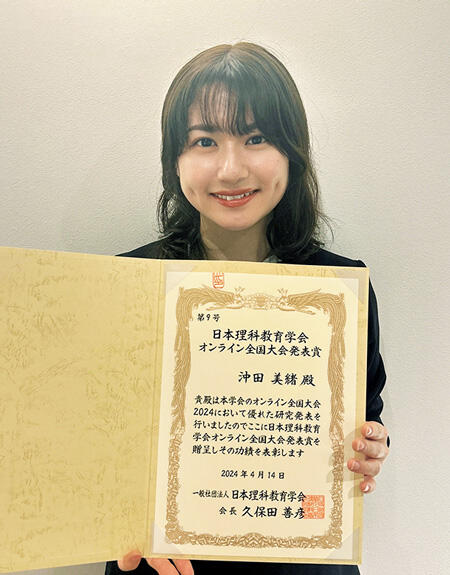 第9号
日本理科教育学会
オンライン全国大会発表賞
沖田 美緒 殿
貴殿は本学会のオンライン全国大会
2024において優れた研究発表を
行いましたのでここに日本理科教育
学会オンライン全国大会発表賞を
贈呈しその功績を表彰します
2024年4月14日
一般社団法人 日本理科教育学会
会長 久保田 善彦